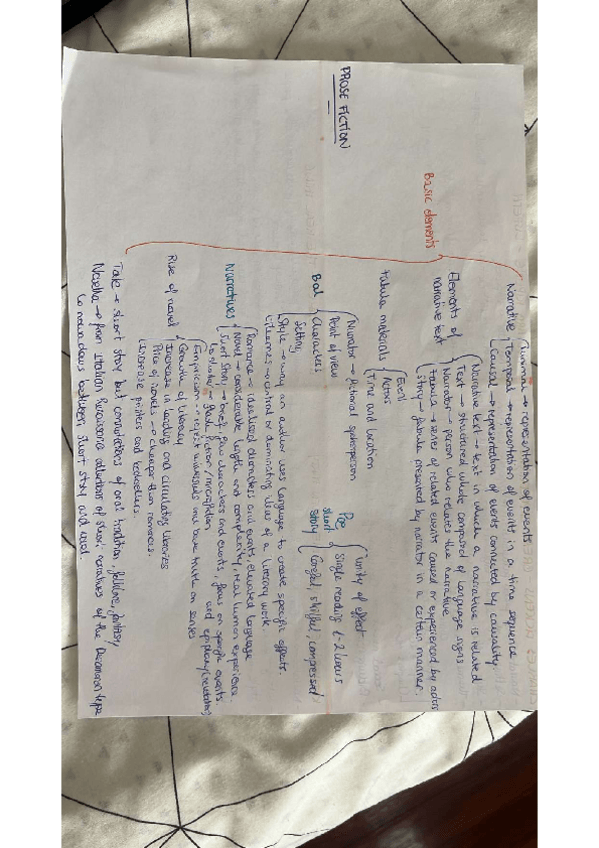 PROSE FICTION
Basic elements
Narrative
Minimum → representation of events
Temporal → representation of events in a time sequence
Causal → representation of events connected by causality
Elements of narrative text
Narrative text → text in which a narrative is related
Text → structured whole composed of language signs
Narrator → person who relates the narrative
Fabula → series of related events caused or experienced by actors
Story → fabula presented by narrator in a certain manner.
Fabula materials
Event
Actors
Time and location
Bal
Narrator → fictional spokesperson
Point of view
Characters
Setting
Style → way an author uses language to create specific effects.
Themes → central or dominating ideas of a literary work.
Poe short story
Unity of effect
Single reading 1-2 hours
Careful, skilful, compressed
Narratives
Romance → idealised characters and events, elevated language
Novel → considerable length and complexity, real human experience.
Short Story → brief, few characters and events, focus on specific events and epiphany
Flash fiction / microfiction
Rise of novel
Empiricism → reject and base truth on senses
Growth of literacy
Increase in lending and circulating libraries
Price of novels → cheaper than romances.
printers and booksellers.
Tale → short story but connotations of oral tradition, folklore, fantasy
Novella → from Italian collections of short narratives of the Decameron type
boundaries between short story and novel.